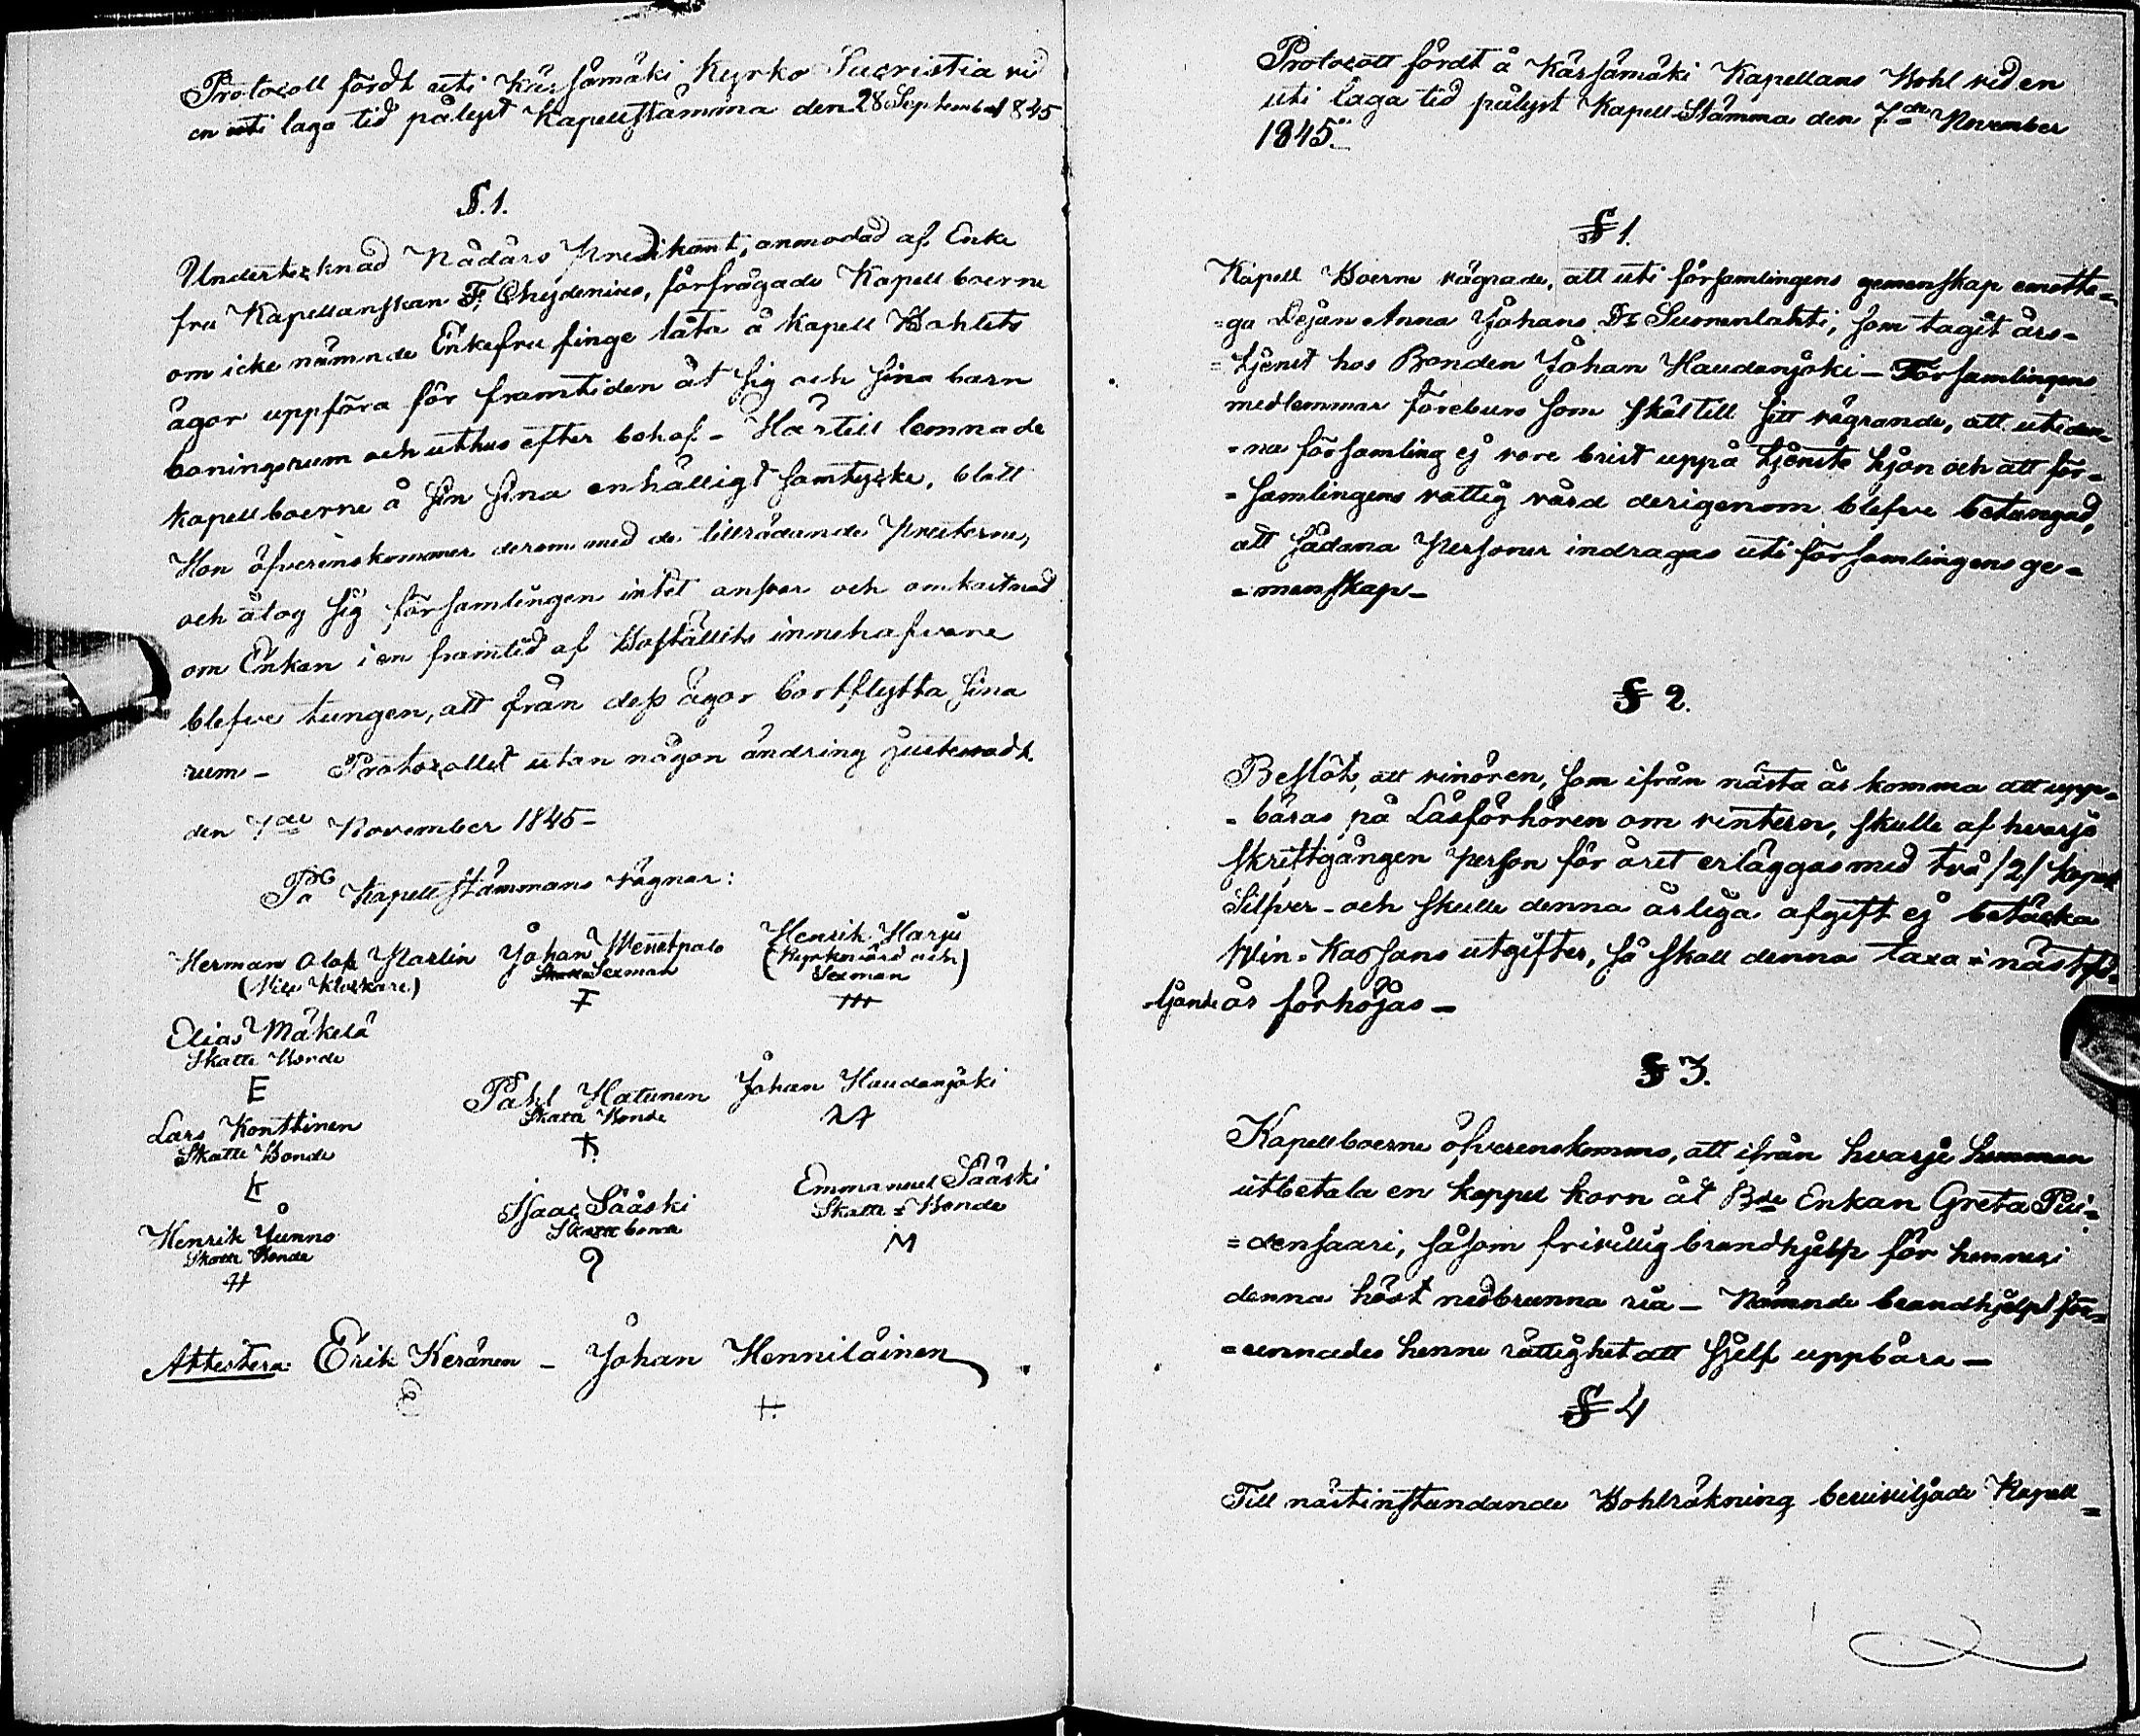 Protocoll fördt uti Kärsämäki Kyrko Sacristia vid
en uti laga tid pålyst Kapellstämma den 28 September 1845
§. 1.
Undertecknad Nådårs Predikant, anmodad af Enke
fru Kapellanskan F. Chydenius, förfrågade Kapellboerne
om icke nämnde Enkefru finge låta å Kapell Bohlets
ägor uppföra för framtiden åt sig och sina barn
boningsrum och uthus efter behof. – Härtill lemnade
Kapellboerne å sin sina enhälligt samtycke, blott
Hon öfverenskommer derom med de tillträdande Presterne,
och åtog sig församlingen intet ansvar och omkostnad
om Enkan i en framtid af Boställets innehafvare
blefve tungen, att från dess ägor bortflytta sina
rum – Protocollet utan någon ändring justeradt.
den 7de November 1845 –
På Kapellstämmans vägnar:
Herman Olof Planlin Johan Wenetpalo Henrik Harju
(Vice Klockare) Sexman (Kyrkovärd och
Sexman)
Elias Mäkelä
Skatte Bonde
E
Påhl Hatunen Johan Haudanjoki
Skatte Bonde
Lars Konttinen
Skatte Bonde
Isaac Sääski Emmanuel Sääski
Skattebonde Skatte-Bonde
M
Henrik Junno
Skatte Bonde
Attestera: Erik Keränen – Johan Henniläinen
Protocoll fördt å Kärsämäki Kapellans Bohl vid en
uti laga tid pålyst Kapell-Stämma den 7de November
1845.
§ 1.
Kapell Boerne vägrade, att uti församlingens gemenskap emotta=
=ga Dejan Anna Johans Dr Suonenlahti, som tagit års-
=tjenst hos Bonden Johan Haudanjoki – Församlingens
medlemmar föreburo som skäl till sitt vägrande, att uti den=
=na församling ej vore brist uppå tjenste hjon och att för=
=samlingens rättig vård derigenom blefve betungad,
att sådana Personer indragas uti församlingens ge=
=menskap –
§ 2.
Beslöts, att vinören, som ifrån nästa år komma att upp=
=bäras på Läsförhören om vintern, skulle af hvarje
skriftgången person för året erläggas med två /2/ kopek
Silfver – och skulle denna årliga afgift ej betäcka
Win-Kassans utgifter, så skall denna taxa i nästföl=
=jande år förhöjas –
§ 3.
Kapellboerne öfverenskommo, att ifrån hvarje hemman
utbetala en kappe korn åt Bde Enkan Greta Pii=
=densaari, såsom frivillig brandhjelp för hennes i
denna höst nedbrunna ria – Nämnde brandhjelp för=
=unnades henne rättighet att sjelf uppbära –
§ 4
Till nästinstundande Bohlräkning beviviljade Kapell=